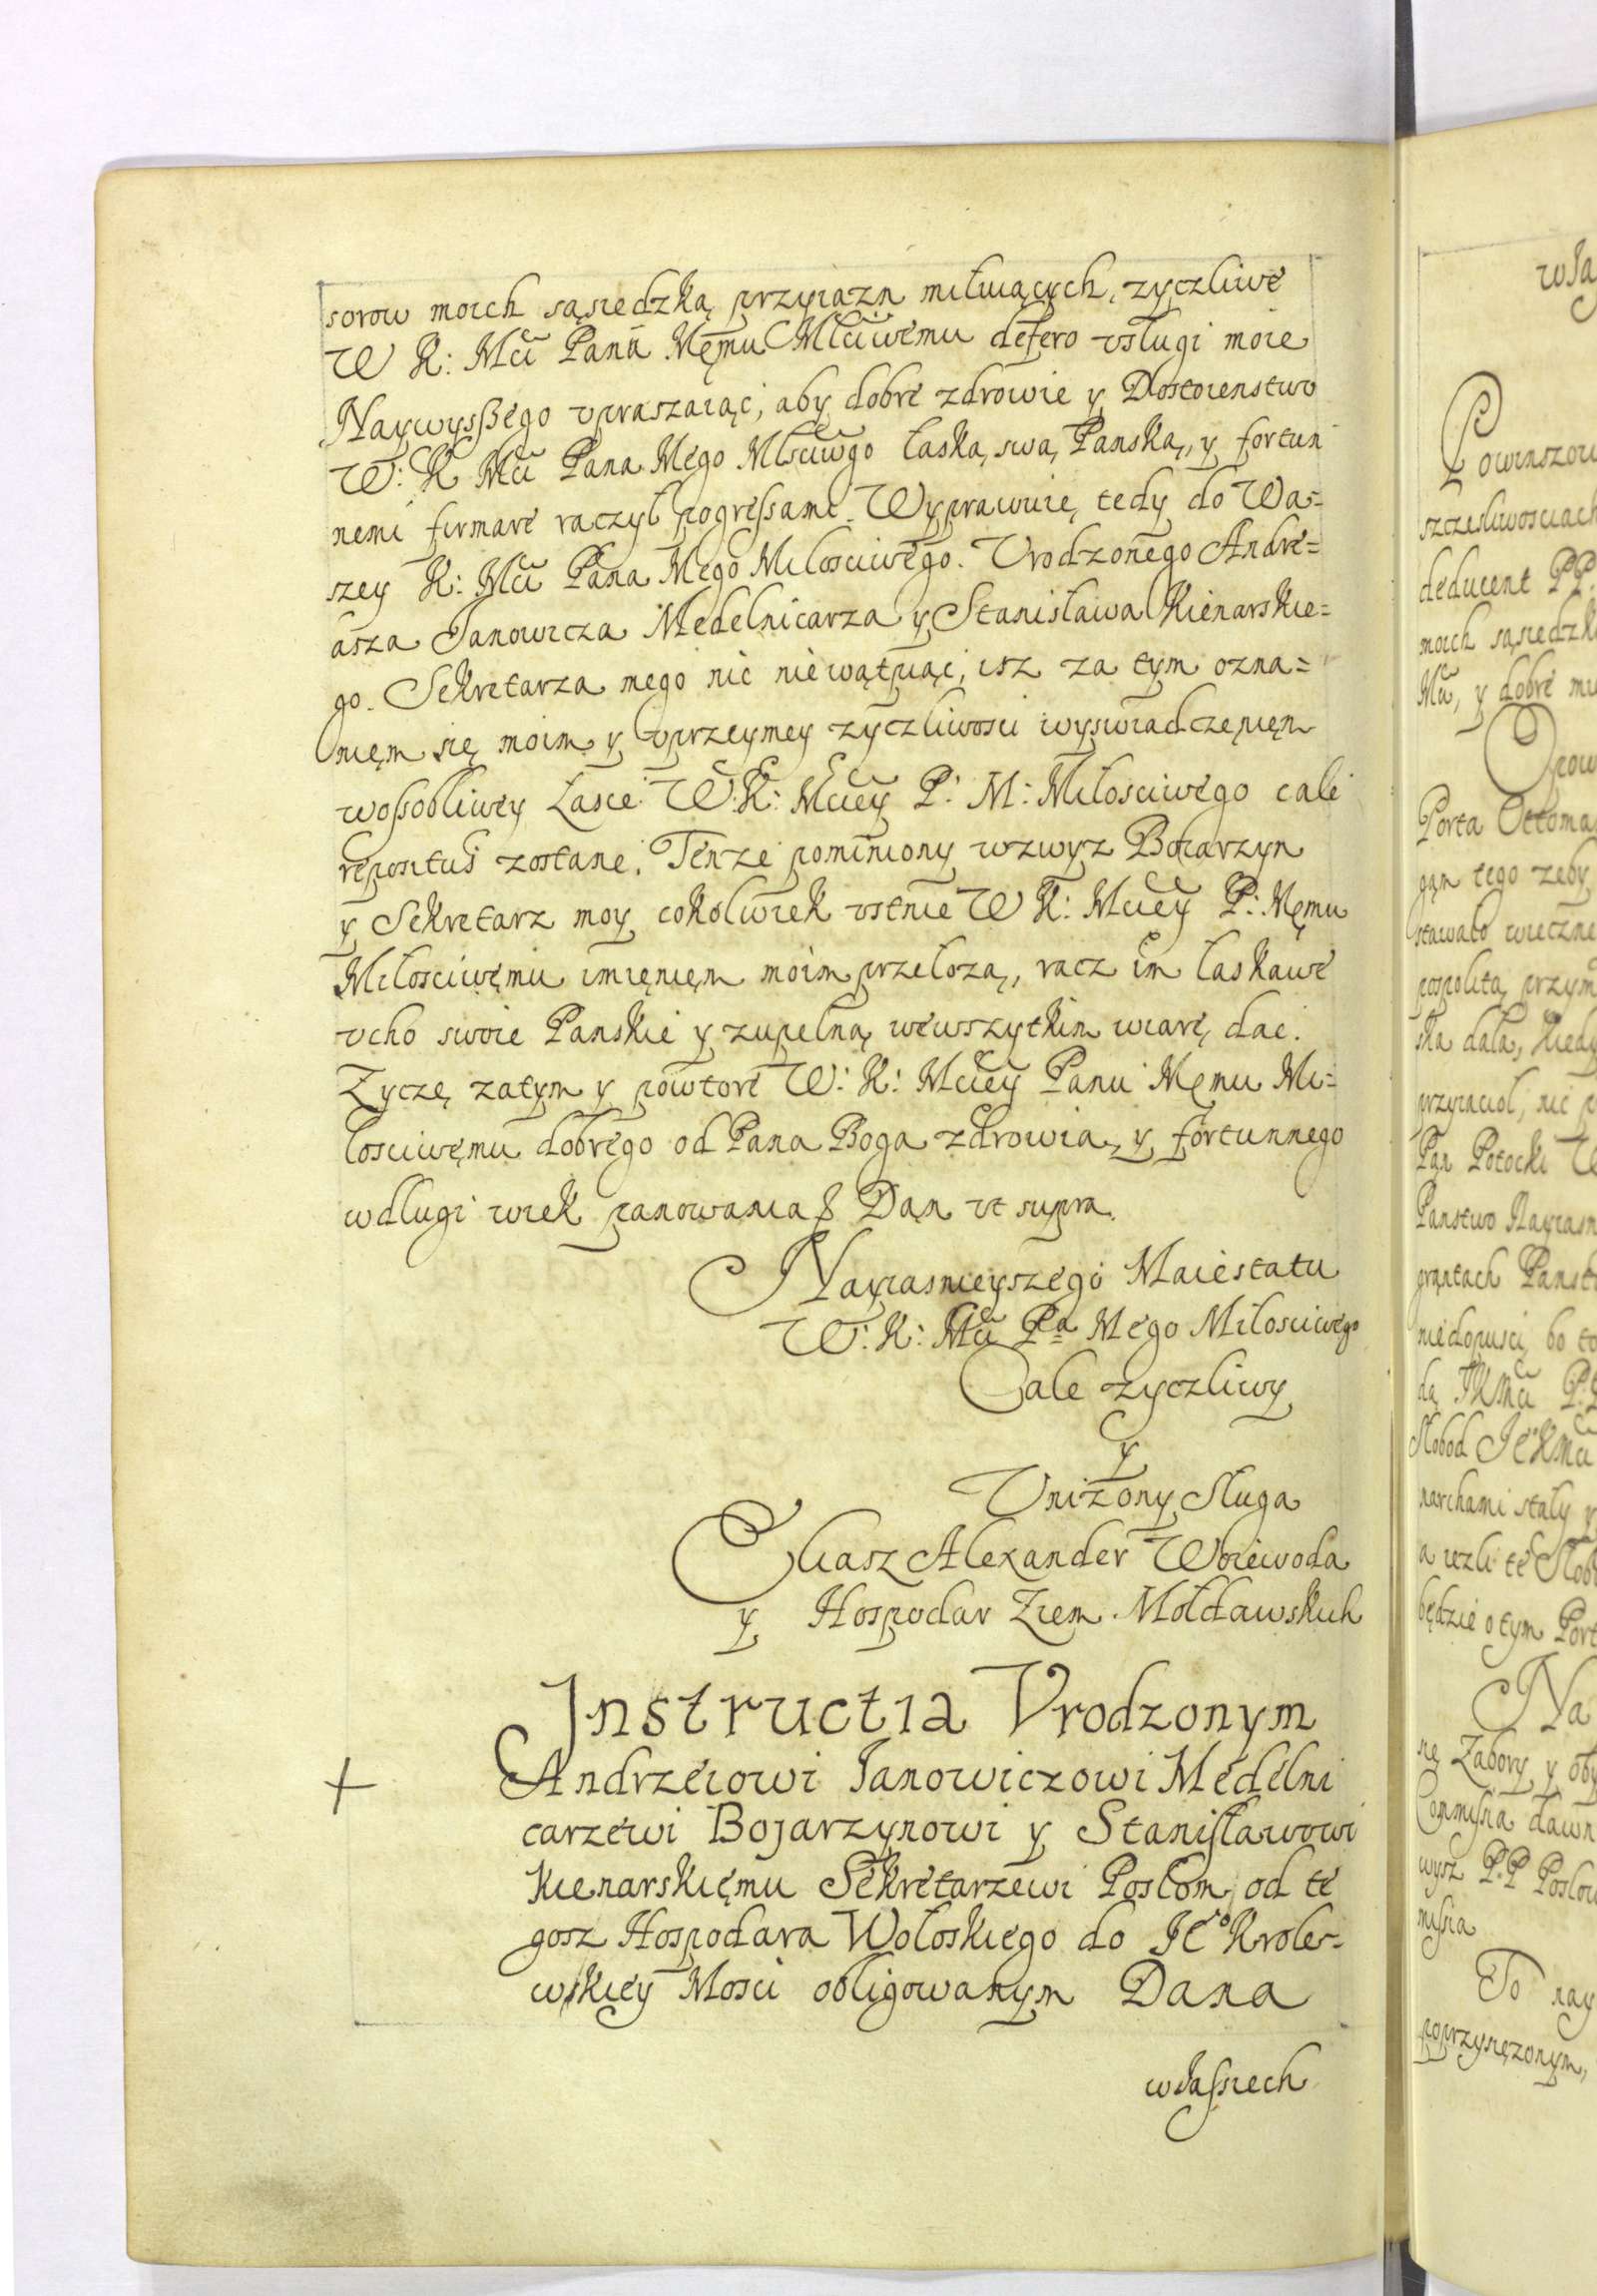 sorow moich sąsiedzką przyiazn miłuiących, zyczliwe
W K: Mci Panu Męmu Młciwemu defero vsługi moie
Naywyßego vpraszaiąc, aby dobre zdrowie y Dostoienstwo
W: K Mci Pana Mego Młsciwgo łaską swą Panską, y fortun
nemi firmare raczył pogressami. Wyprawuię tedy do Wa=
szey K: Mci Pana Mego Milosciwego. Vrodzonego Andre=
asza Janowicza Medelnicarza y Stanisława Kienarskie=
go. Sekretarza mego nic niewątpiąc, isz za tym ozna=
nięm się moim y vprzeymey zyczliwosci wyswiadczenięm
wossobliwey Łasce W: K: Mciey P: M: Milosciwego cale
repositus zostane. Tenze pominiony wzwyz Boiarzyn
y Sekretarz moy cokolwiek vstnie W K: Mciey P: Męmu
Miłosciwęmu imięnięm moim przełozą, racz im łaskawe
vcho swoie Panskie y zupełną wewszytkim wiarę dac.
Zyczę zatym y powtore W: K: Mciey Panu Męmu Mi=
łosciwęmu dobrego od Pana Boga zdrowia, y fortunnego
wdlugi wiek panowania Dan vt supra.
Nayiasnieyszego Maiestatu
W: K: Mci Pa Mego Miłosciwego
Cale zyczliwy
y
Vniżony Sluga
Eliasz Alexander Woiewoda
y Hospodar Ziem Mołdawskich
Instructia Vrodzonym
+ Andrzeiowi Janowiczowi Medelni
carzewi Bojarzynowi y Stanisławowi
Kienarskięmu Sekretarzewi Posłom od te
gosz Hospodara Wołoskiego do Jeo Krole=
wskiey Mosci obligowanym Dana
wJassiech
wJa
Powinszow
szczesliwosciach
deducent PP:
moich sąsiedzk
Mci, y dobre mi
Porta Ottoma
gąm tego zeby
stawało wieczne
pospolitą przym
ska dała, kiedy
przyiaciol, nic p
Pąn Potocki W
Panstwo Nayiasn
gruntach Panst
niedopusci bo to
dą JKMci P:
Słobod Jeo KMci
narchami stały y
a iezli te Słob
będzie o tym Port
Na
się Zabory y oby
Commisia dawn
wysz P.P Posłow
misia
To nay
poprzysięzonym,